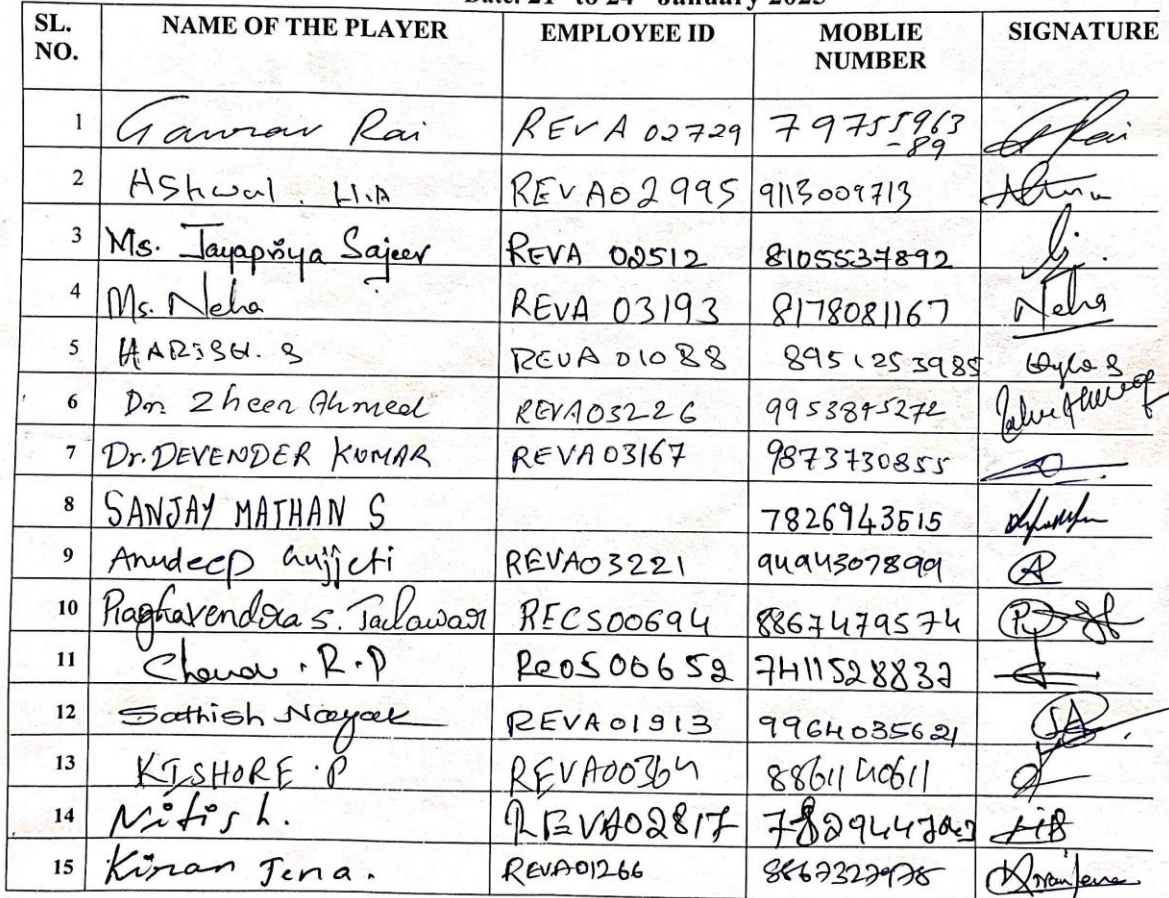 Date: 21 to 24 January 2025
SL. NO. NAME OF THE PLAYER EMPLOYEE ID MOBLIE NUMBER SIGNATURE
1 Gaurav Rai REVA 02729 7975596389
2 Ashwal. H.A REVA02995 9113009713
3 Ms. Jayapriya Sajeev REVA 02512 8105537892
4 Ms. Neha REVA 03193 8178081167 Neha
5 HARISH. S REVA 01088
6 Dr. Zheer Ahmed REVA03226 9953845272
7 Dr. DEVENDER KUMAR REVA03167 9873730855
8 SANJAY MATHAN S 7826943515
9 Anudeep Gujjeti REVA03221 9494307899
10 Raghavendra S. Talawar RECS00694 8867479574
11 R.P 7411528832
12 Sathish Nayak REVA01913 9964035621
13 KISHORE .P REVA00364 8861140611
14 Nitish. REVA02817
15 Kiran Jena. REVA01266 8867327978